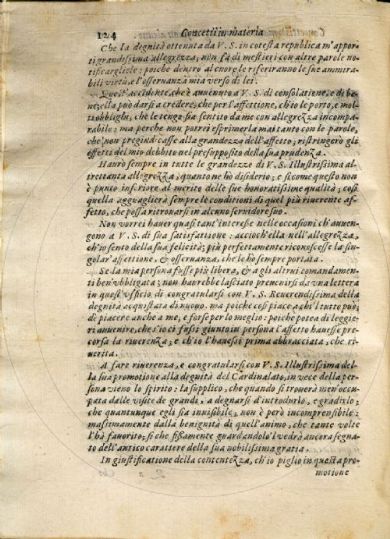 124 Concetti in materia
Che la degnità ottenuta da V. S. in cotesta republica m'appor-
ti grandissima allegrezza, non fà di mestieri con altre parole no-
tificargliele: poiche dentro al cuore le riferiranno le sue ammira-
bili virtù, e l'osservanza mia verso di lei.
Quest'accidente, ch'è auuenuto a V. S. di consolatione, e di be-
ne, ella può darsi a credere, che per l'affettione, ch'io le porto, e mol-
ti obblighi, che le tengo sia sentito da me con allegrezza incompa-
rabile: ma perche non potrei esprimerla mai tanto con le parole,
che non pregiudicasse alla grandezza dell'affetto, ristringerò gli
effetti del mio debbito nel presupposto della sua prudenza.
Haurò sempre in tutte le grandezze di V. S. Illustrissima al-
trettanta allegrezza, quanto ne hò disiderio; e sicome questo non
è punto inferiore al merito delle sue honoratissime qualità; così
quella agguaglierà sempre le conditioni di quel più riuerente af-
fetto, che possa ritrouarsi in alcuno seruidore suo.
Non vorrei hauer quasi tant'interesse nelle occasioni ch'auuen-
gono a V. S. di sua satisfatione: accioche ella nell'allegrezza,
ch'io sento della sua felicità; più perfettamente riconoscesse la sin-
golar'affettione, & osseruanza, che le hò sempre portata.
Se la mia persona fosse più libera, & a gli altrui comandamenti
ben'vbbligata; non haurebbe lasciato preuenirsi da vna lettera
in quest'vfficio di congratularsi con V. S. Reuerendissima della
degnità acquistata di nuouo. ma poiche così piace a chi'l tutto può;
dì piacere anche a me, e forse per lo meglio: poiche potea di leggie-
ri auuenire, che s'io ci fossi giunto in persona l'affetto hauesse pre-
corsa la riuerenza; e ch'io l'hauessi prima abbracciata, che
riuerita.
A fare riuerenza, e congratularsi con V. S. Illustrissima del-
la sua promotione alla degnità del Cardinalato, in vece della per-
sona vieno lo spirito: la supplico, che quando si trouerà men'occu-
pata dalle visite de grandi, a degnarsi d'introdurlo, e gradirlo;
che quantunque egli sia inuisibile, non è però incomprensibile:
massimamente dalla benignità di quell'animo, che tante volte
l'hà fauorito; sì che fissamente guardandolo l'vedrà ancora segna-
to dell'antico carattere della sua nobilissima gratia.
In giustificatione della contentezza, ch'io piglio in questa pro-
motione